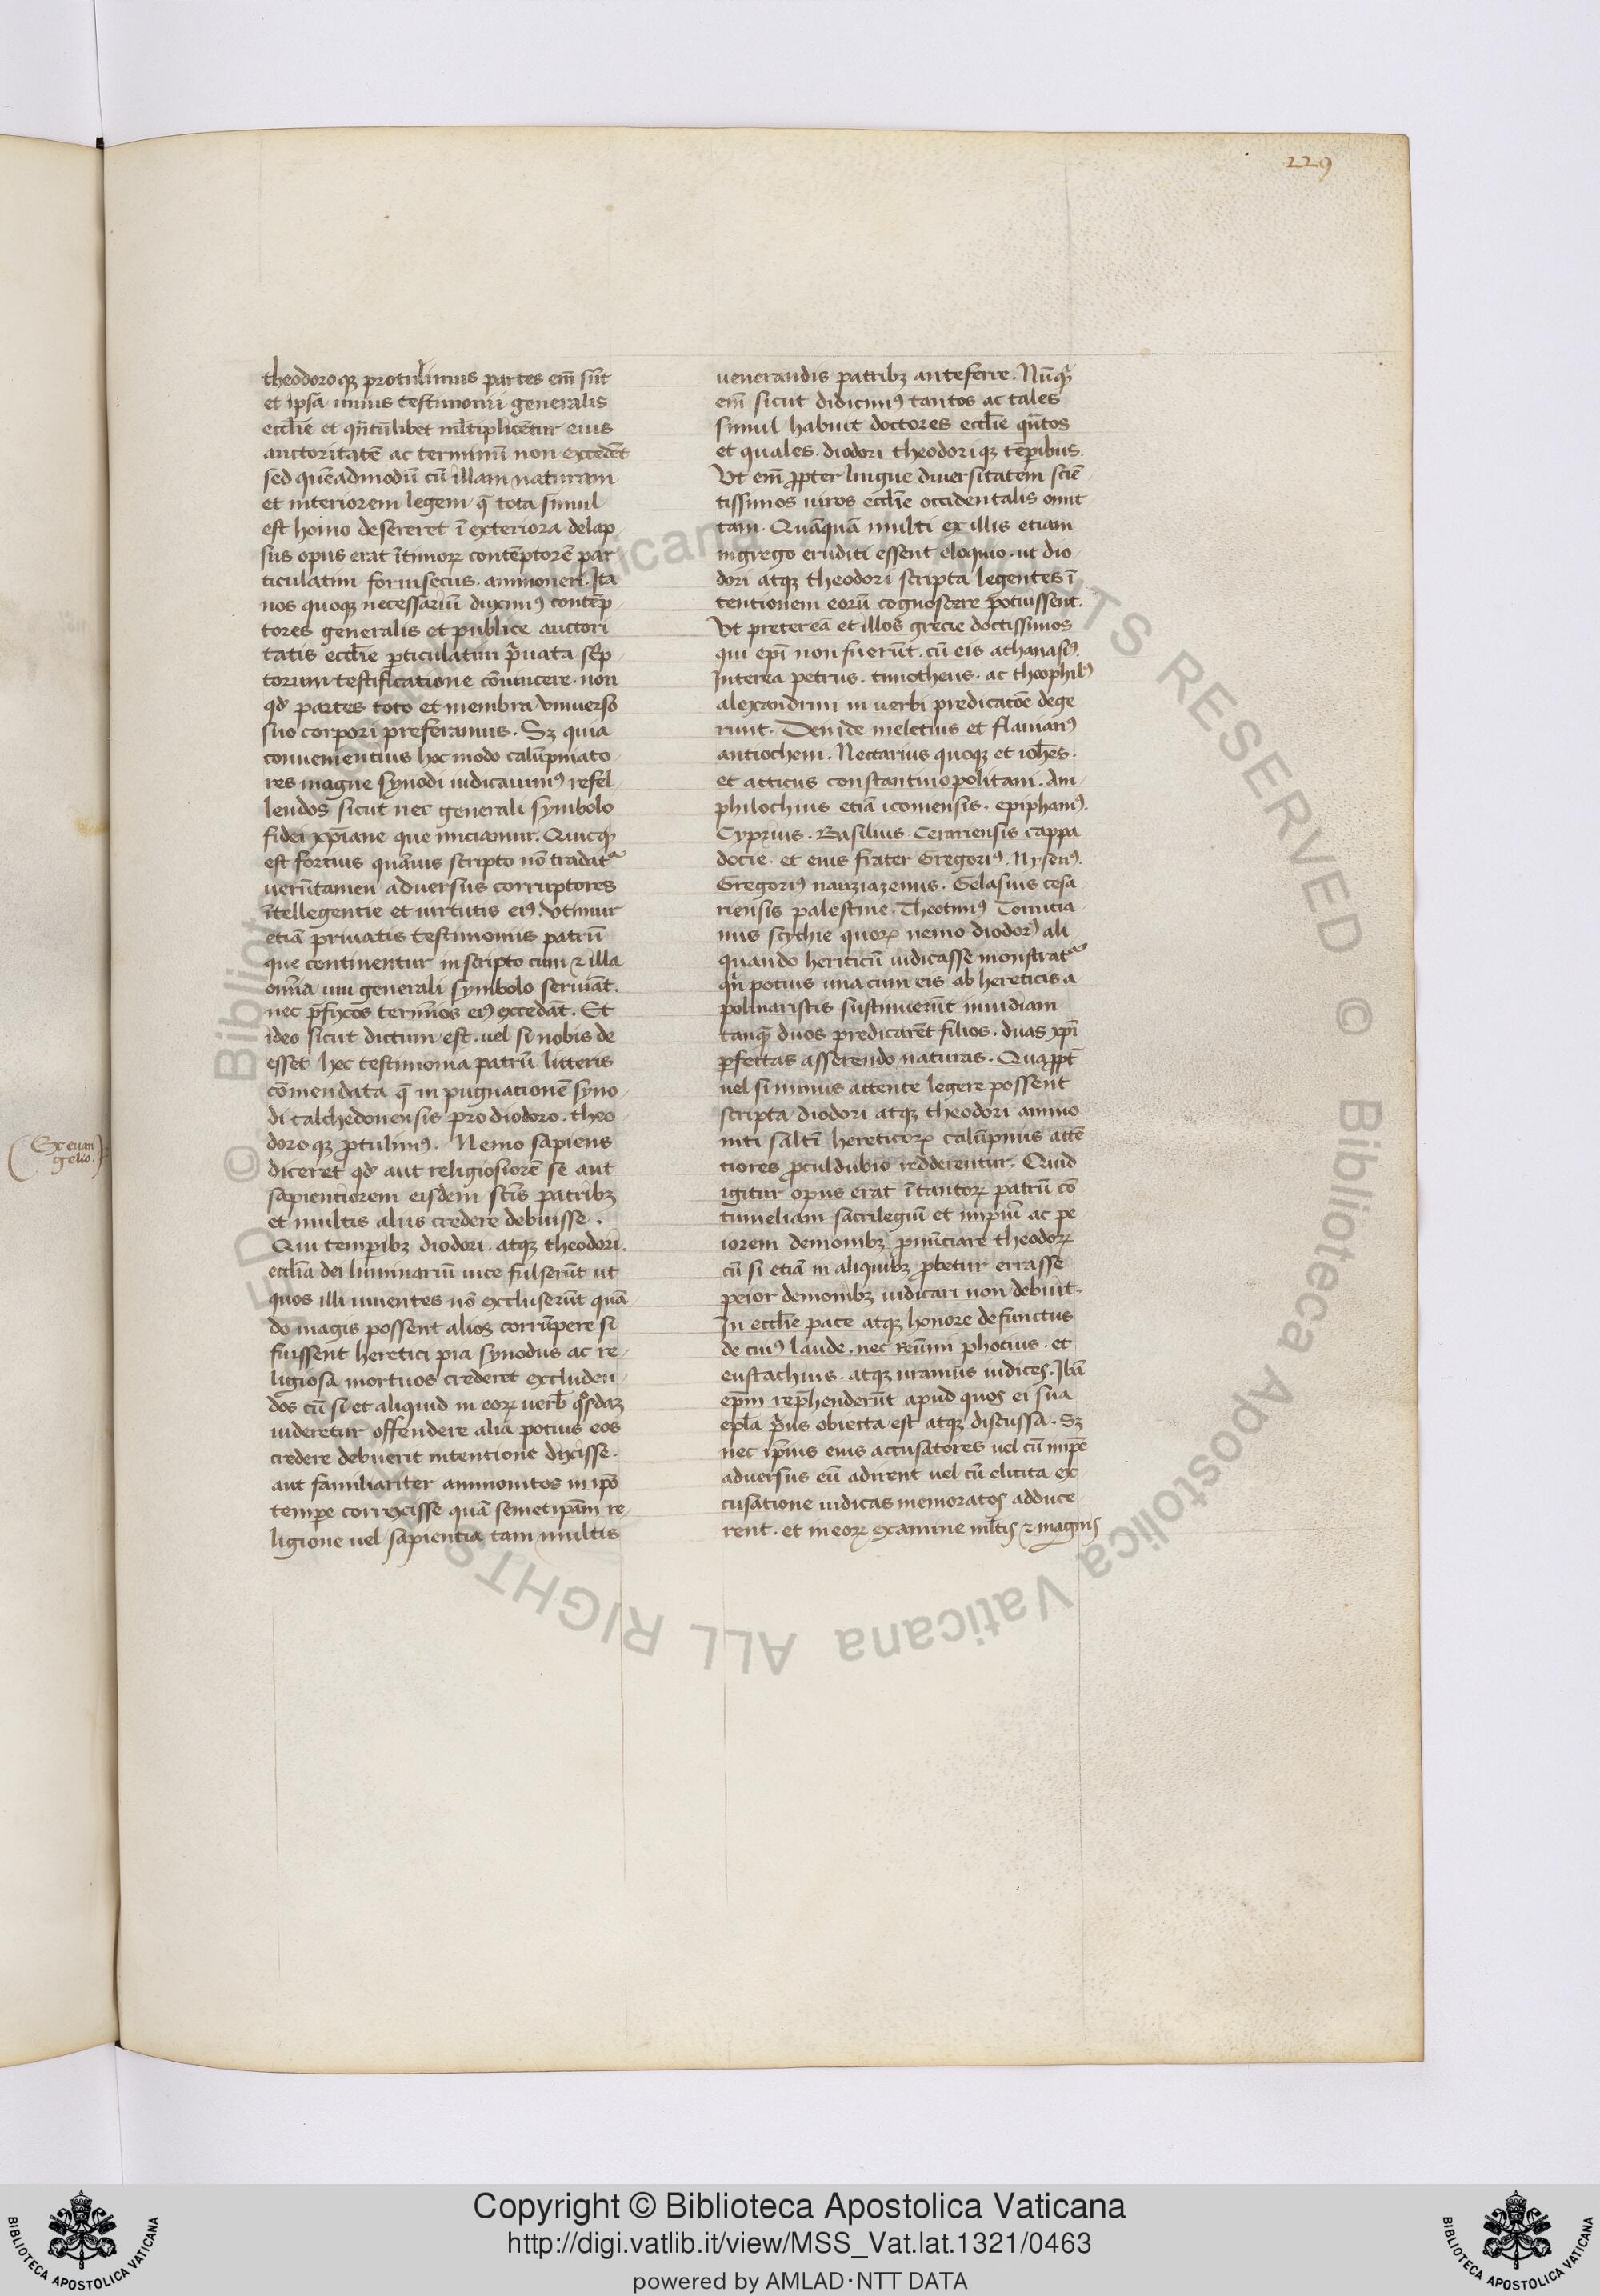 229
theodoroqꝫ protulimus partes em̄ sūt
et ipsa unius testimonii generalis
eccłie et qn̄tūlibet młtiplicētur eius
auctoritatē ac terminū non excedēt
sed quēadmodū cū illam naturam
et interiorem legem q̄ tota simul
est homo desereret ī exteriora delap
sus opus erat ītimoꝝ contēptorē par
ticulatim forinsecus. ammoneri. Ita
nos quoqꝫ necessariū duximꝰ contēp
tores generalis et publice auctori
tatis eccłie ꝑticulatim p̄uata sc̄p
torum testificatione cōuincere. non
qđ partes toto et membra vniuerso
suo corpori preferamus. Sꝫ quia
conuenientius hoc modo calūpniato
res magne synodi iudicauimꝰ refel
lendos sicut nec generali symbolo
fidei xp̄iane que iniciamur. Quicqđ
est fortius quāuis scripto nō tradat᷑
uerūtamen aduersus corruptores
ītellegentie et uirtutis eiꝰ. vtimur
etiā priuatis testimoniis patrū
que continentur in scripto cum ⁊ illa
omīa uni generali symbolo seruiāt.
nec p̄fixos termīos eiꝰ excedāt. Et
ideo sicut dictum est. uel si nobis de
esset hec testimonia patrū litteris
cōmendata q̄ in pugnationē syno
di calchedonensis pro diodoro. theo
doroqꝫ ꝓtulimꝰ. Nemo sapiens
diceret qđ aut religiosiorē se aut
sapientiorem eisdem sc̄is patribꝫ
et multis aliis credere debuisse.
Qui temꝑibꝫ diodori. atqꝫ theodori.
eccłia dei luminariū uice fulserūt ut
quos illi uiuentes nō excluserūt quā
do magis possent alios corrūpere si
fuissent heretici pia synodus ac re
ligiosa mortuos crederet excluden
dos cū si et aliquid in eoꝝ uerb̄ qͦsdaꝫ
uideretur offendere alia potius eos
credere debuerit intentione dixisse.
aut familiariter ammonitos in ip̄o
tempe correxisse quā semetip̄am re
ligione uel sapientia tam multis
uenerandis patribꝫ anteferre. Nūqͣ
em̄ sicut didicimꝰ tantos ac tales
simul habuit doctores eccłie qn̄tos
et quales. diodori theodoriqꝫ tēpibus.
Vt em̄ ꝓpter lingue diuersitatem sciē
tissimos uiros eccłie occidentalis omit
tam. Quāquā multi ex illis etiam
ingrego eruditi essent eloquio. ut dio
dori atqꝫ theodori scripta legentes ī
tentionem eorū cognoscere potuissent.
Vt pretereā et illos grecie doctissimos
qui ep̄i non fuerūt. cū eis athanasꝰ.
Interea petrus. timotheus. ac theophilꝰ
alexandrini in uerbi predicatōe dege
runt. Deinde meletius et flauianꝰ
antiocheni. Nectarius quoqꝫ et ioh̄es.
et atticus constantinopolitani. Am
philochius etiā iconiensis. epiphaniꝰ.
Cyprius. Basilius Cerariensis cappa
docie. et eius frater Gregoriꝰ. Nysenꝰ.
Gregoriꝰ nanziazenus. Gelasius cesa
riensis palestine. Theotimꝰ Tomitia
nus scythie quoꝝ nemo diodorꝰ ali
quando heriticū iudicasse monstrat᷑
qn̄ potius una cum eis ab hereticis a
polinaristis sustinuerūt inuidiam
tanqͣ duos predicarēt filios. duas xp̄i
ꝑfectas asserendo naturas. Quaꝓpt̄
uel si minus attente legere possent
scripta diodori atqꝫ theodori ammo
niti saltī hereticoꝝ calūpniis attē
tiores ꝓculdubio redderentur. Quid
igitur opus erat ī tantoꝝ patrū cō
tumeliam sacrilegiū et impiū ac pe
iorem demonibꝫ ꝓnūciare theodoꝝ
cū si etiā in aliquibꝫ ꝓbetur errasse
peior demonibꝫ iudicari non debuit.
In eccłie pace atqꝫ honore defunctus
de cuiꝰ laude. nec Reūmi photius. et
eustachius. atqꝫ uranius iudices. Ibā
ep̄m rep̄henderūt apud quos ei sua
epła p̄us obiecta est atqꝫ discussa. Sꝫ
nec ip̄mus eius accusatores uel cū impe
aduersus eū adirent uel cū elicita ex
cusatione iudicas memoratos adduce
rent. et in eoꝝ examine młtis ⁊ magnis
Ex euan
gelio.
Copyright © Biblioteca Apostolica Vaticana
http://digi.vatlib.it/view/MSS_Vat.lat.1321/0463
powered by AMLAD·NTT DATA
BIBLIOTECA APOSTOLICA VATICANA
BIBLIOTECA APOSTOLICA VATICANA